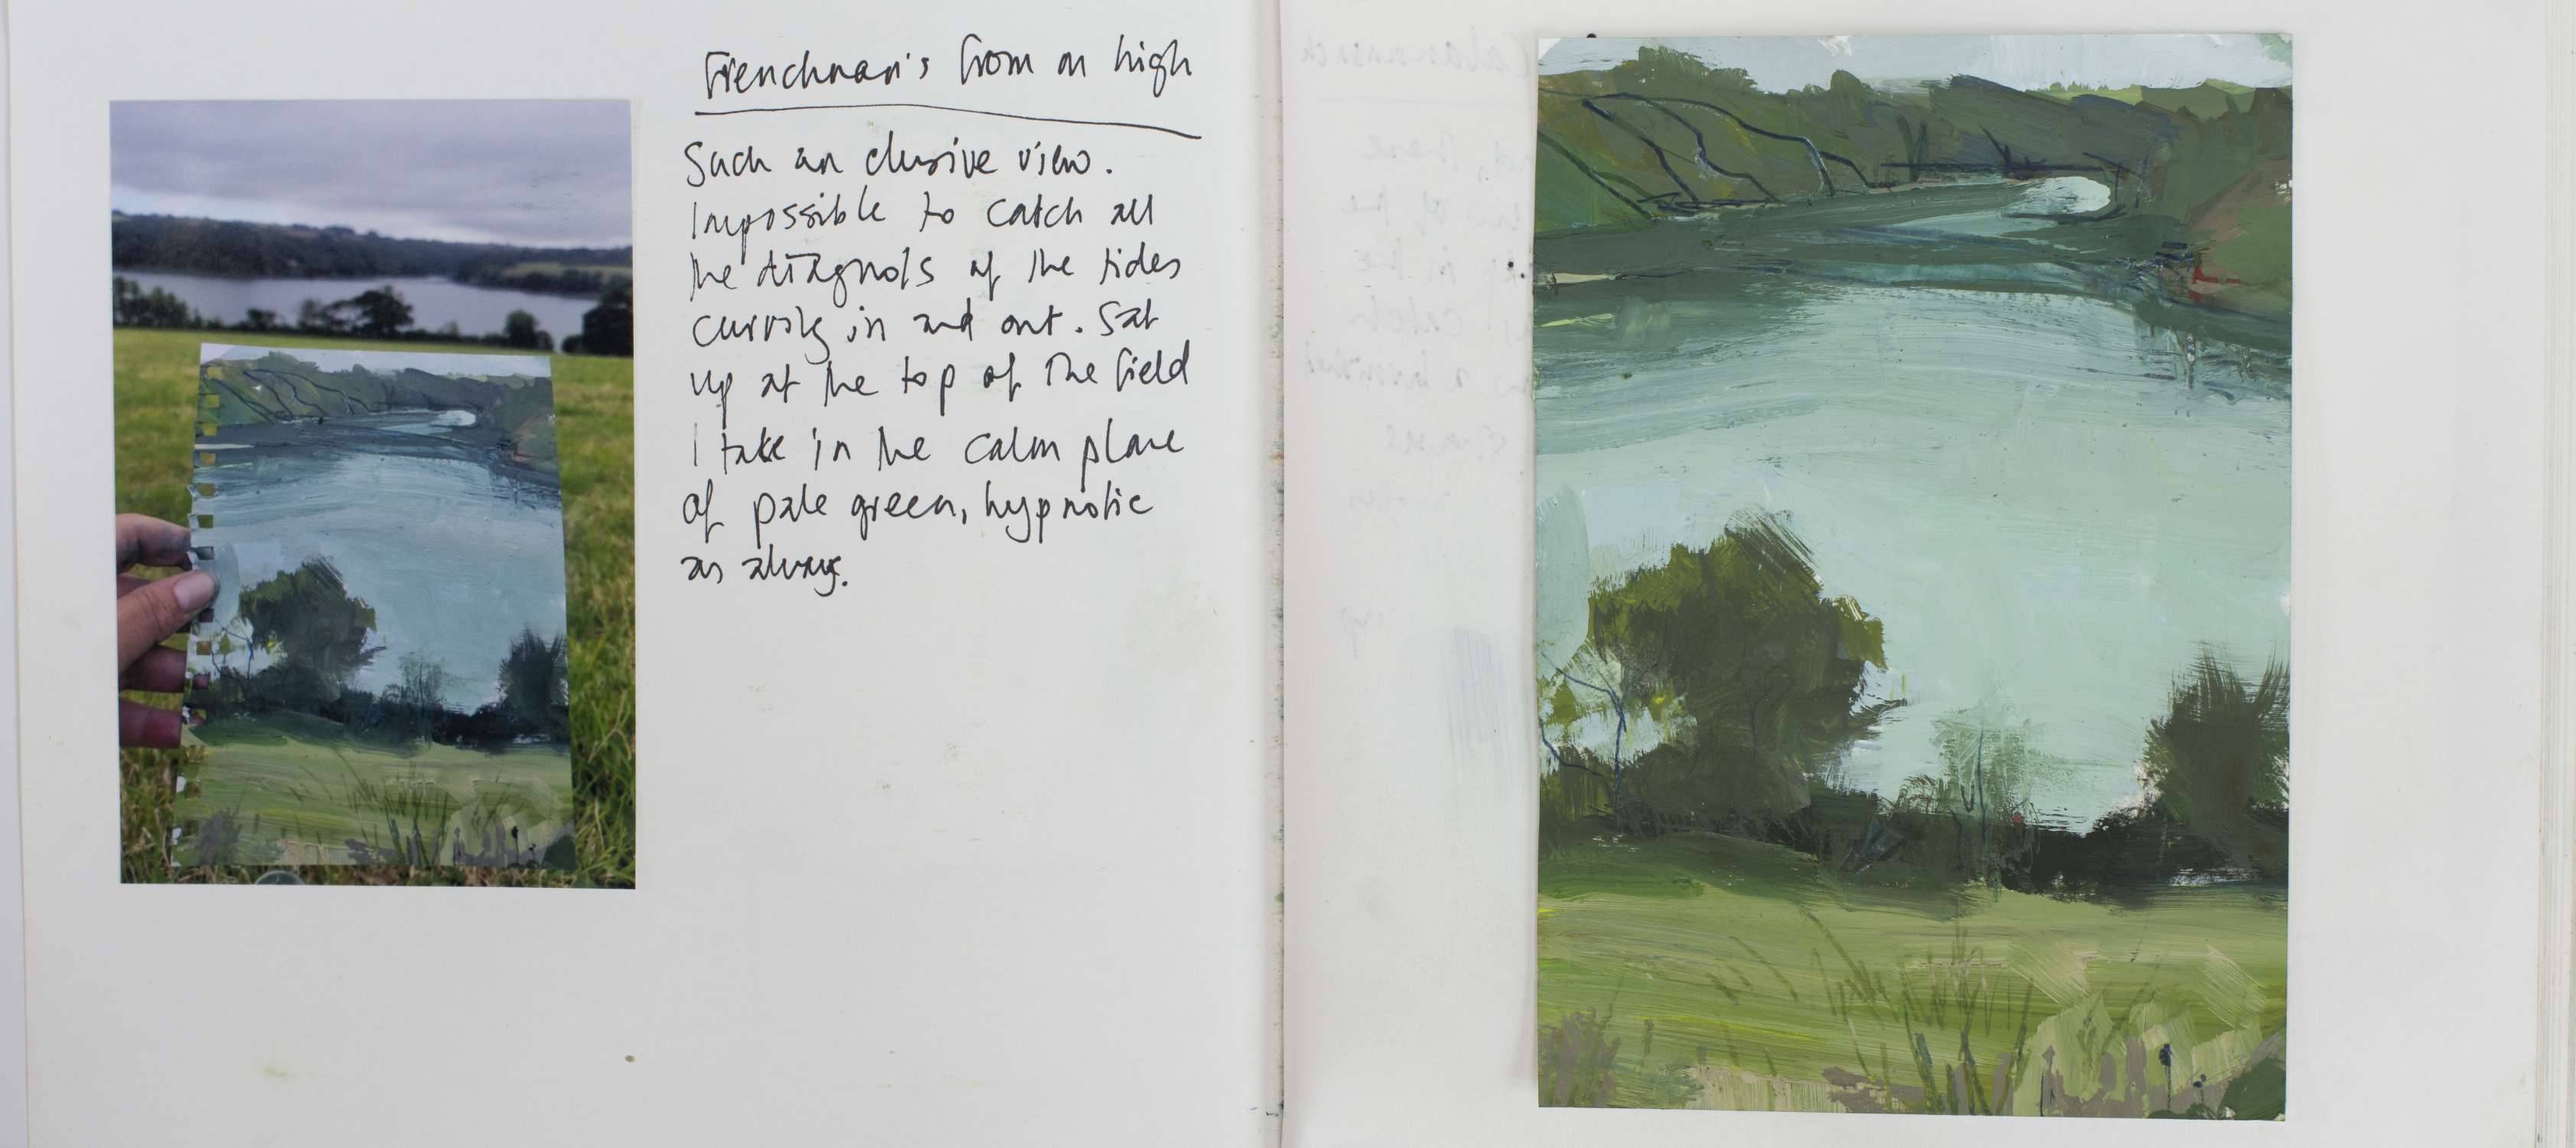 Frenchman's from on high
Such an elusive view.
Impossible to catch all
the diagnols of the tides
curving in and out. Sat
up at the top of the field
I take in the calm plane
of pale green, hypnotic
as always.